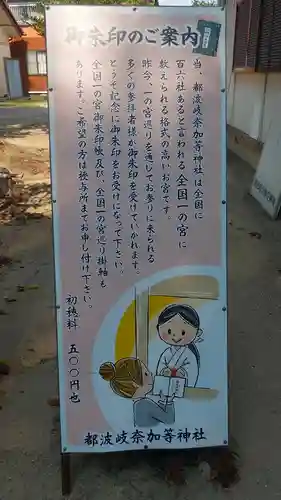 御朱印のご案内
当、都波岐奈加等神社は全国に
百六社あると言われる全国一の宮に
数えられる格式の高いお宮です。
昨今、一の宮巡りを通してお参りに来られる
多くの参拝者様が御朱印を受けていかれます。
どうぞ記念に御朱印をお受けになって下さい。
全国一の宮御朱印帳及び、全国一の宮巡り掛軸も
あります。ご希望の方は授与所までお申し付け下さい。
初穂料 五〇〇円也
都波岐奈加等神社